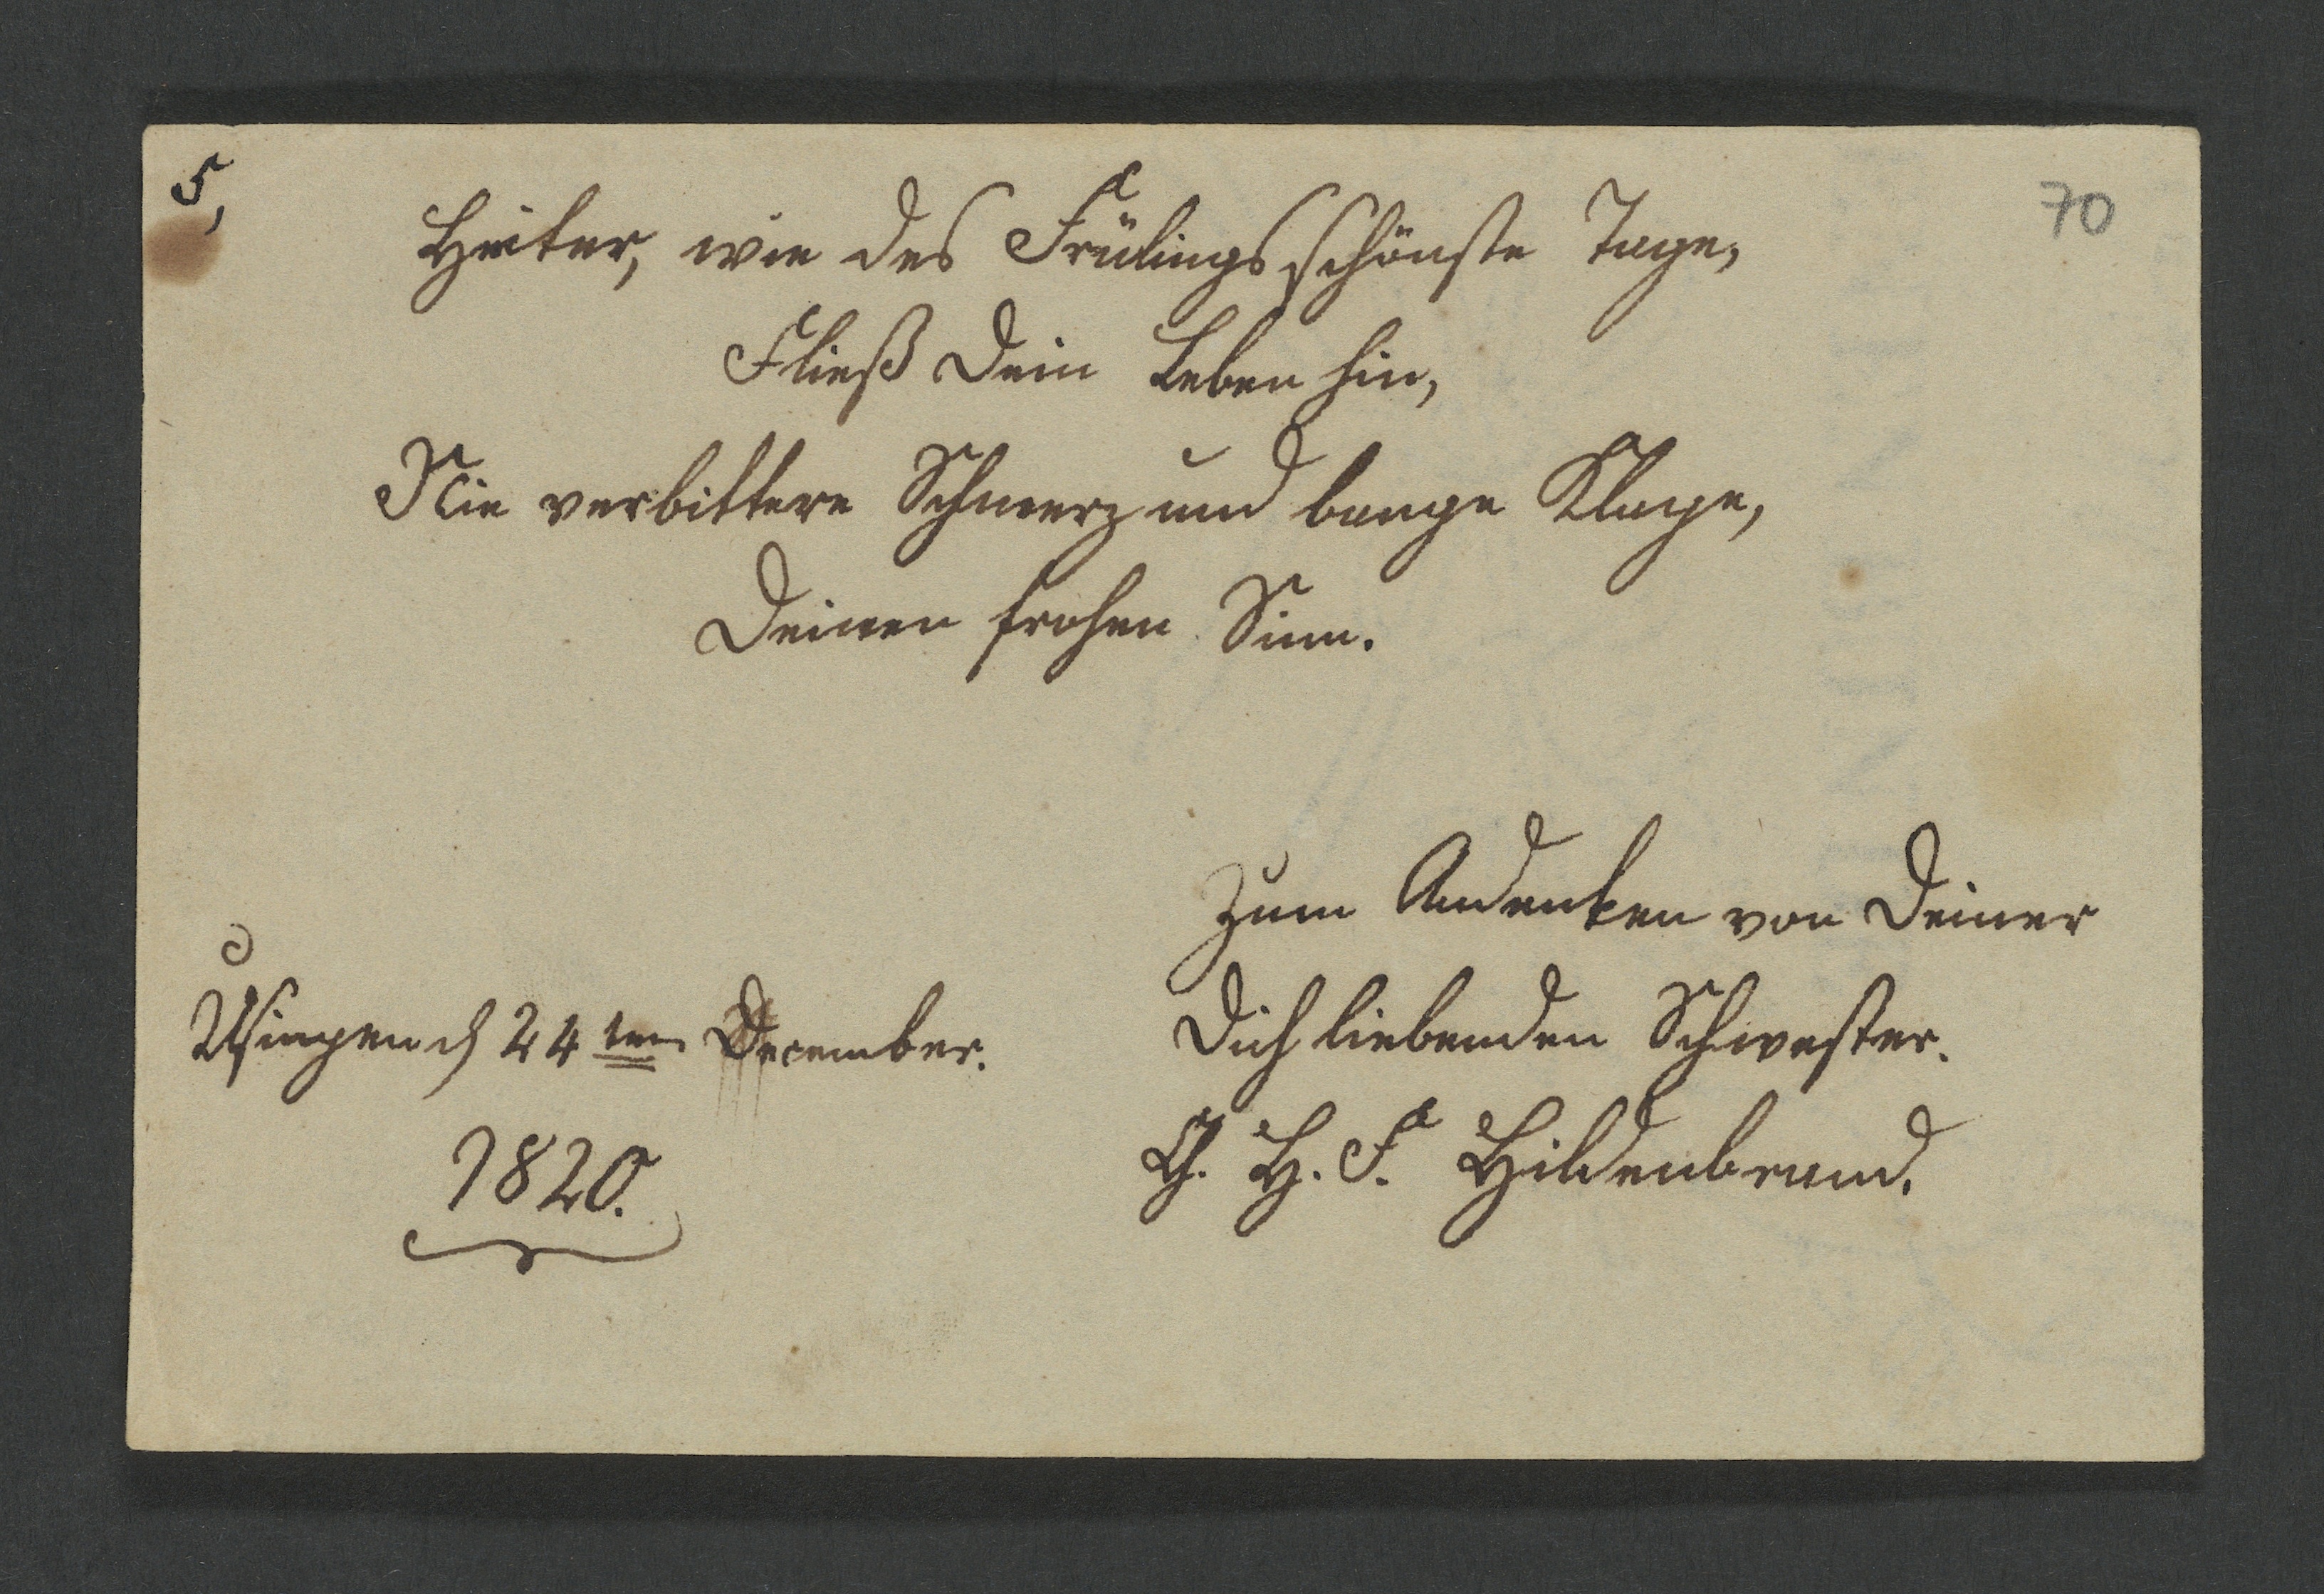 5,
70
Heiter, wie des Frülings schönste Tage,
Fließ Dein Leben hin,
Nie verbittere Schmerz und bange Klage,
Deinen frohen Sinn.
Zum Andenken von Deiner
Dich liebenden Schwester.
H. F. Hildenbrand.
Usingen d 24ten December.
1820.